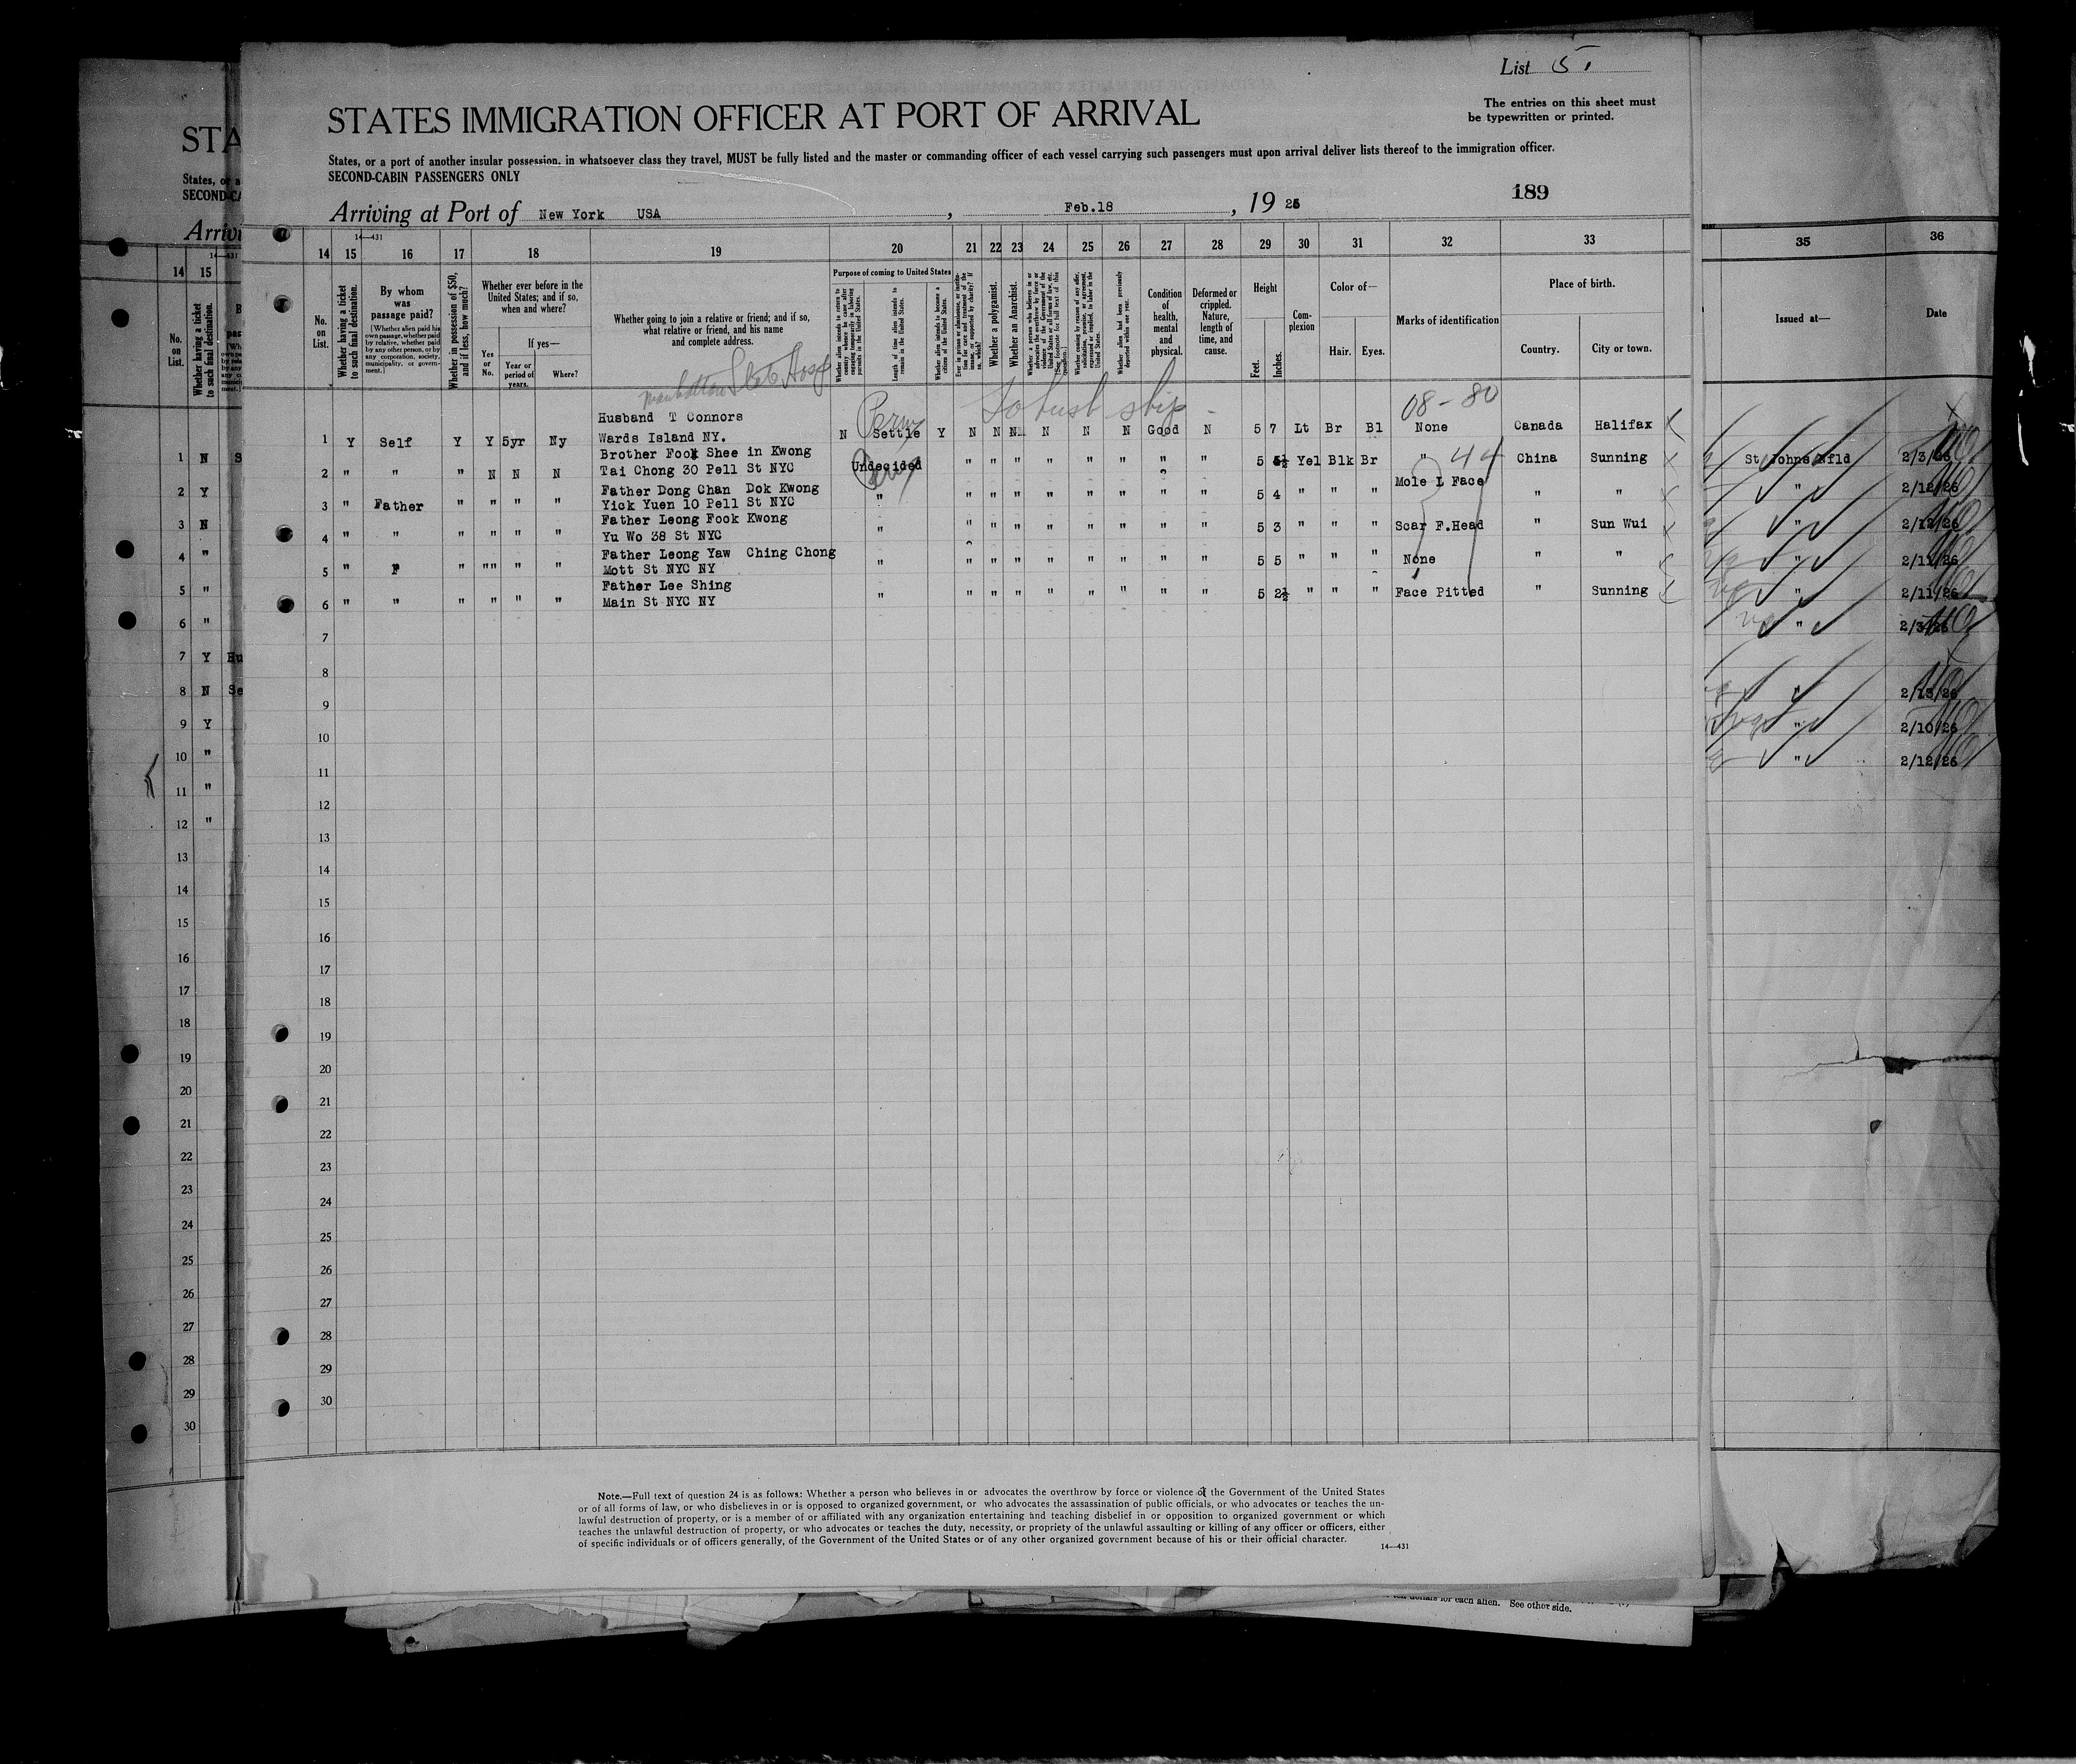 List 5
STATES IMMIGRATION OFFICER AT PORT OF ARRIVAL
The entries on this sheet must
be typewritten or printed.
States, or a port of another insular possession, in whatsoever class they travel, MUST be fully listed and the master or commanding officer of each vessel carrying such passengers must upon arrival deliver lists thereof to the immigration officer.
SECOND-CABIN PASSENGERS ONLY
189
Arriving at Port of New York USA, Feb.18, 19 26
14—431
14 15 16 17 18 19 20 21 22 23 24 25 26 27 28 29 30 31 32 33
35 36
No. on List.
Whether having a ticket to such final destination.
By whom was passage paid?
(Whether alien paid his own passage, whether paid by relative, whether paid by any other person, or by any corporation, society, municipality, or government.)
Whether in possession of $50, and if less, how much?
Whether ever before in the United States; and if so, when and where?
Yes or No.
If yes—
Year or period of years.
Where?
Whether going to join a relative or friend; and if so, what relative or friend, and his name and complete address.
Purpose of coming to United States
Length of time alien intends to remain in the United States.
Whether alien intends to become a citizen of the United States.
Whether a polygamist.
Whether an Anarchist.
Whether alien had been previously deported within one year.
Condition of health, mental and physical.
Deformed or crippled. Nature, length of time, and cause.
Height
Feet. Inches.
Complexion
Color of—
Hair. Eyes.
Marks of identification
Place of birth.
Country. City or town.
Issued at—
Date
Manhattan State Hosp
Perm
08-80
Husband T Connors
1 Y Self Y Y 5yr Ny Wards Island NY. N Settle Y N N N N N N Good N 5 7 Lt Br Bl None Canada Halifax
Brother Fook Shee in Kwong
2 " " " N N N Tai Chong 30 Pell St NYC Undecided " " " " " " " " 5 5½ Yel Blk Br " 44 China Sunning
Father Dong Chan Dok Kwong
3 " Father " " " " Yick Yuen 10 Pell St NYC " " " " " " " " " 5 4 " " " Mole L Face " "
Father Leong Fook Kwong
4 " " " " " " Yu Wo 38 St NYC " " " " " " " " " 5 3 " " " Scar F.Head " Sun Wui
Father Leong Yaw Ching Chong
5 " F " "" " " Mott St NYC NY " " " " " " " " " 5 5 " " " None " "
Father Lee Shing
6 " " " " " " Main St NYC NY " " " " " " " " " 5 2½ " " " Face Pitted " Sunning
7
8
9
10
11
12
13
14
15
16
17
18
19
20
21
22
23
24
25
26
27
28
29
30
St Johns Nfld 2/3/26
" 2/12/26
" 2/12/26
" 2/11/26
" 2/11/26
" 2/3/26
" 2/13/26
" 2/10/26
" 2/12/26
Note.—Full text of question 24 is as follows: Whether a person who believes in or advocates the overthrow by force or violence of the Government of the United States
or of all forms of law, or who disbelieves in or is opposed to organized government, or who advocates the assassination of public officials, or who advocates or teaches the un-
lawful destruction of property, or is a member of or affiliated with any organization entertaining and teaching disbelief in or opposition to organized government or which
teaches the unlawful destruction of property, or who advocates or teaches the duty, necessity, or propriety of the unlawful assaulting or killing of any officer or officers, either
of specific individuals or of officers generally, of the Government of the United States or of any other organized government because of his or their official character.
14—431
for each alien. See other side.